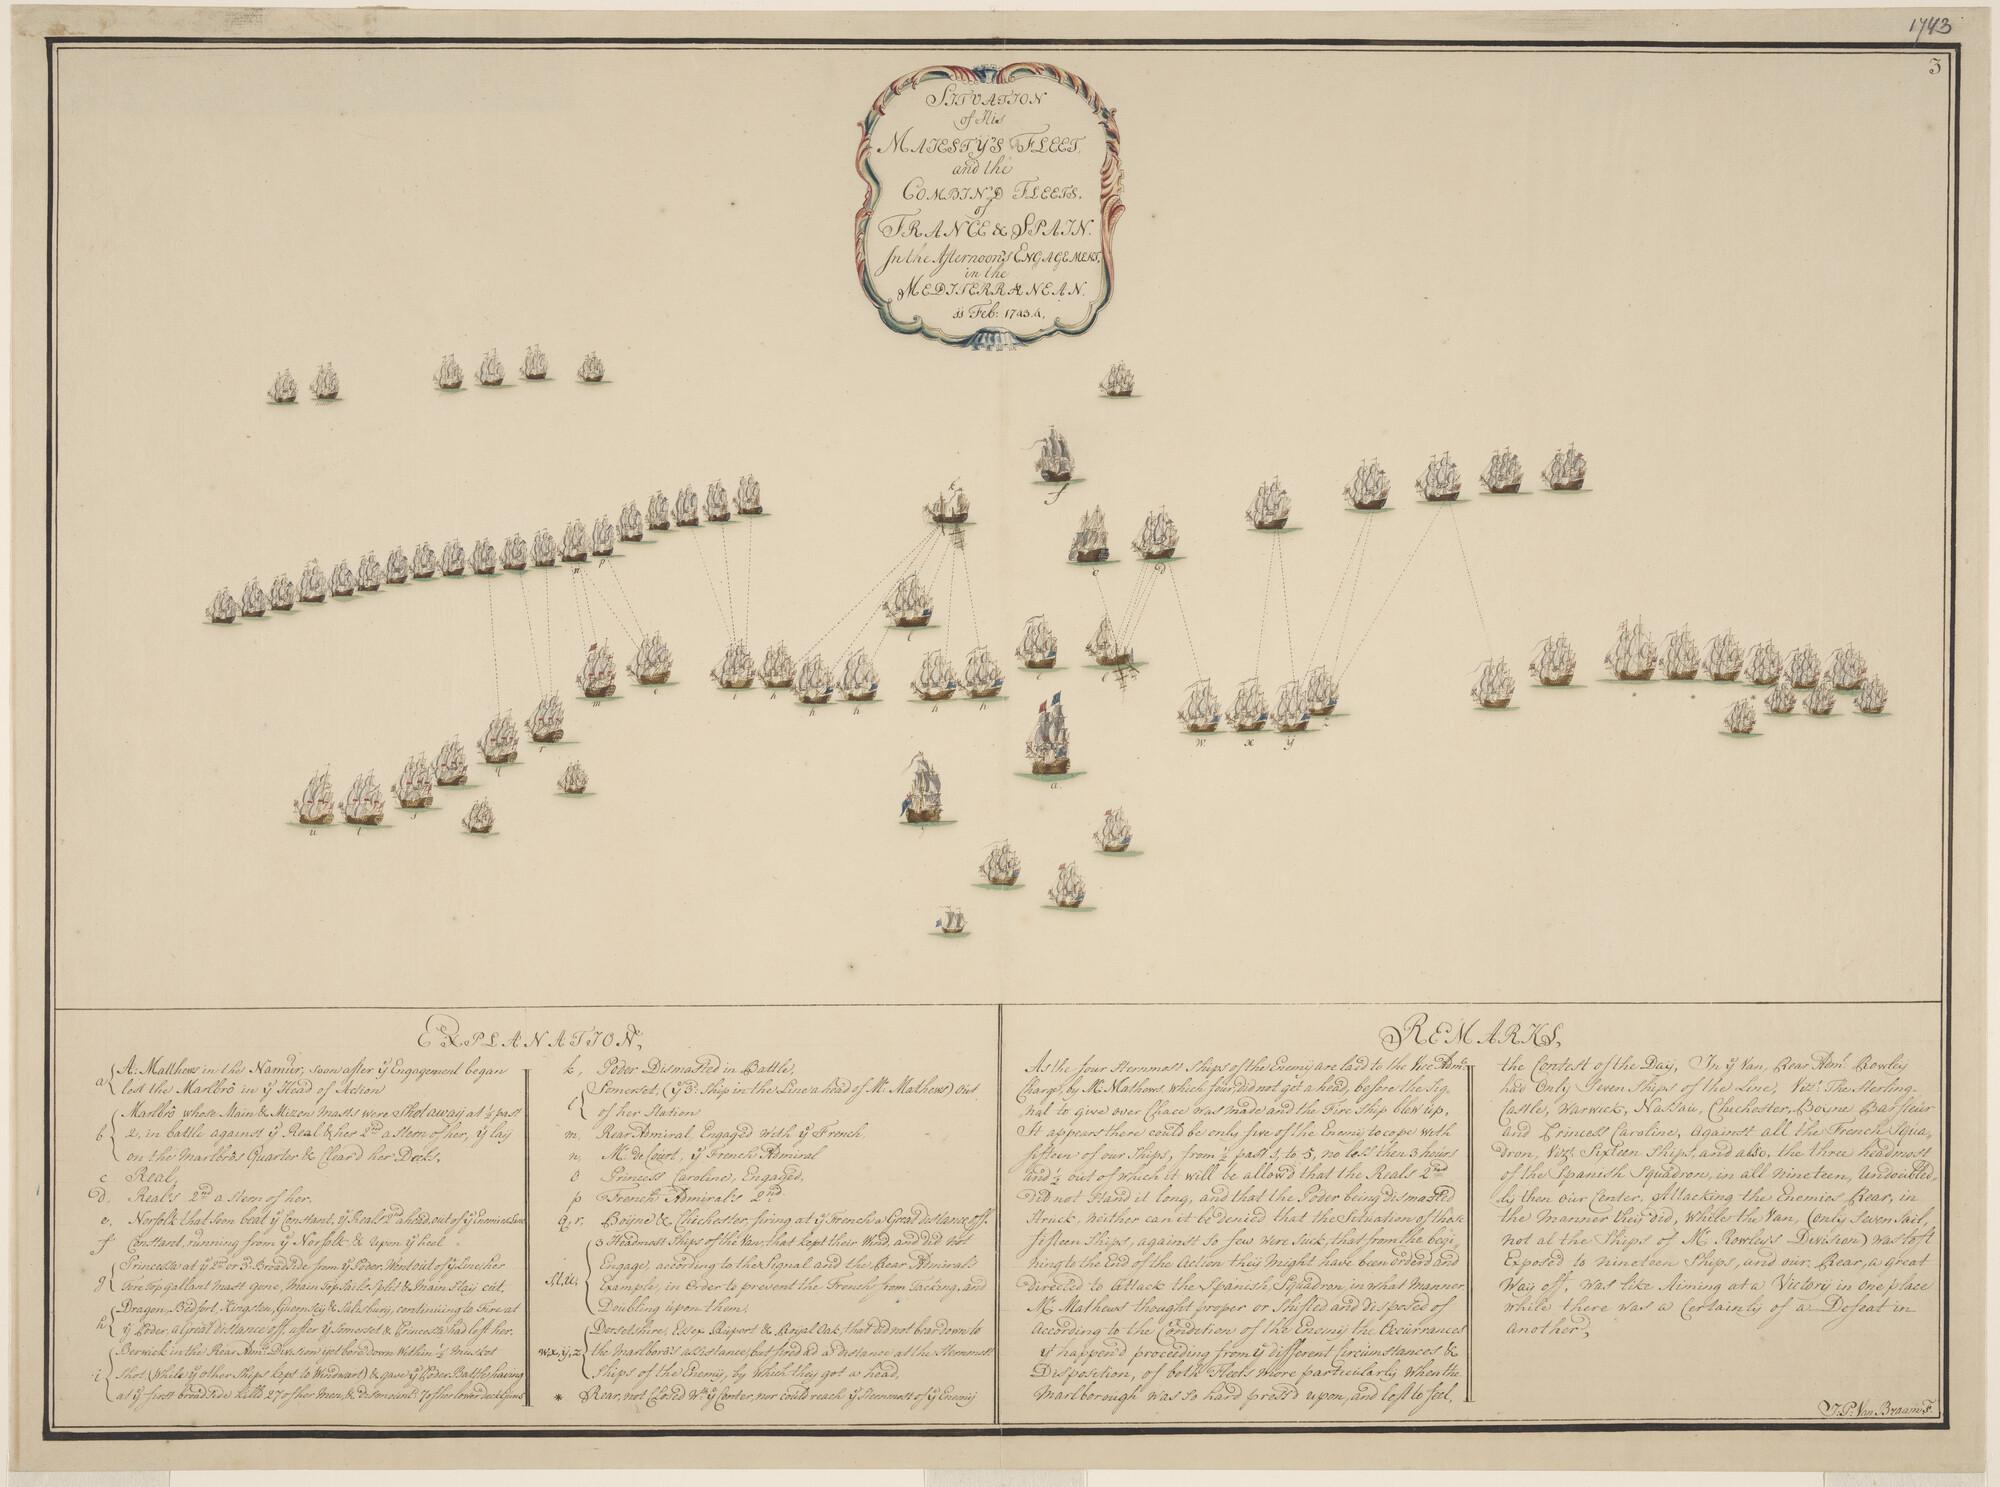 1743
3
SITUATION
of His
MAJESTY'S FLEET,
and the
COMBIN'D FLEETS,
of
FRANCE & SPAIN.
In the Afternoon's ENGAGEMENT,
in the
MEDITERRANEAN.
11 Feb: 1743.4.
k
f
c
d
n
p
l
m
o
i
h
h
h
h
h
e
b
w
x
y
z
a
q
r
s
t
u
EXPLANATION,
a { A: Matthews in the Namur, soon after ÿ Engagement began
left the Marlbrô in ÿ Heat of Action
b { Marlbrô whose Main & Mizon Masts were Shot away at ½ past
2, in battle against ÿ Real & her 2nd a Stern of her, ÿ lay
on the Marlbrôs Quarter & Clear'd her Decks,
c Real,
d, Real's 2nd a Stern of her.
e, Norfolk that soon beat ÿ Constant, ÿ Reals 2nd ahead, out of ÿ Enemies Line
f Constant, running from ÿ Norfolk & upon ÿ heel
g { Princessa at ÿ 2d or 3d Broadside from ÿ Poder, Went out of ÿ Line, her
Fore Top gallant Mast gone, Main Top Sail Split & Main Stay cut.
h { Dragon, Bedfort, Kingston, Guernsey & Salisbury, continuing to Fire at
ÿ Poder, a Great distance off, after ÿ Somerset & Princessa had left her.
i { Berwick in the Rear Adml Division yet bore down Within ½ Musket
Shot (While ÿ other Ships kept to Windward) & gave ÿ Poder Battle, having
at ÿ first broad Side kill'd 27 of her Men, & dismount: 7 of the lower deck guns
k, Poder Dismasted in Battle,
l { Somerset, (ÿ 3d Ship in the Line a head of Mr Mathews) out
of her Station
m, Rear Admiral, Engaged With ÿ French,
n, Mr de Court, ÿ French Admiral
o Princess Caroline, Engaged,
p French Admiral's 2nd
q, r, Boyne & Chichester, firing at ÿ French a Great distance off.
s,t,u, { 3 Headmost Ships of the Van, that kept their Wind, and did not
Engage, according to the Signal and the Rear Admiral's
Example, in Order to prevent the French from Tacking, and
Doubling upon them,
w,x,ÿ,z { Dorsetshire, Essex, Rupert & Royal Oak, that did not bear down to
the Marlboro's assistance, but fired at a distance at the Sternmost
Ships of the Enemy, by which they got a head,
* Rear, not Closed Wth ÿ Center, nor could reach ÿ Sternmost of ÿ Enemy
REMARKS,
As the four Sternmost Ships of the Enemy are laid to the Vice Adml
Charge, by Mr Mathews, which four did not get a head, before the Sig,
nal to give over Chace was made and the Fire Ship blew up,
It appears there could be only five of the Enemy to cope with
fifteen of our Ships, from ½ past 1, to 5, no less then 3 hours
and ½ out of which it will be allow'd that the Reals 2nd
did not Stand it long, and that the Poder being dismasted
Struck, neither can it be denied that the Situation of those
fifteen Ships, against so few were Such, that from the begi,
ning to the End of the Action they might have been order'd and
directed to attack the Spanish Squadron, in what Manner
Mr Mathews thought proper or Shifted and disposed of
According to the Condition of the Enemy the Occurrances
ÿ happen'd proceeding from ÿ different Circumstances &
Disposition, of both Fleets more particularly When the
Marlborough was so hard press'd upon, and left to feel,
the Contest of the Day, In ÿ Van, Rear Adml Rowley
had Only Seven Ships of the Line, Viz: The Sterling-
Castle, Warwick, Nassau, Chichester, Boyne Barfleur
and Princess Caroline, Against all the French Squa,
dron, Viz: Sixteen Ships, and also, the three headmost
of the Spanish Squadron, in all nineteen, Undoubted,
ly then our Center, Attacking the Enemies Rear, in
the Manner they did, While the Van, (only Seven Sail,
not al the Ships of Mr Rowleys Division) was left
Exposed to nineteen Ships, and our Rear, a great
Way off, Was like Aiming at a Victory in one place
while there was a Certainty of a Defeat in
another,
J: P: Van Braam F.